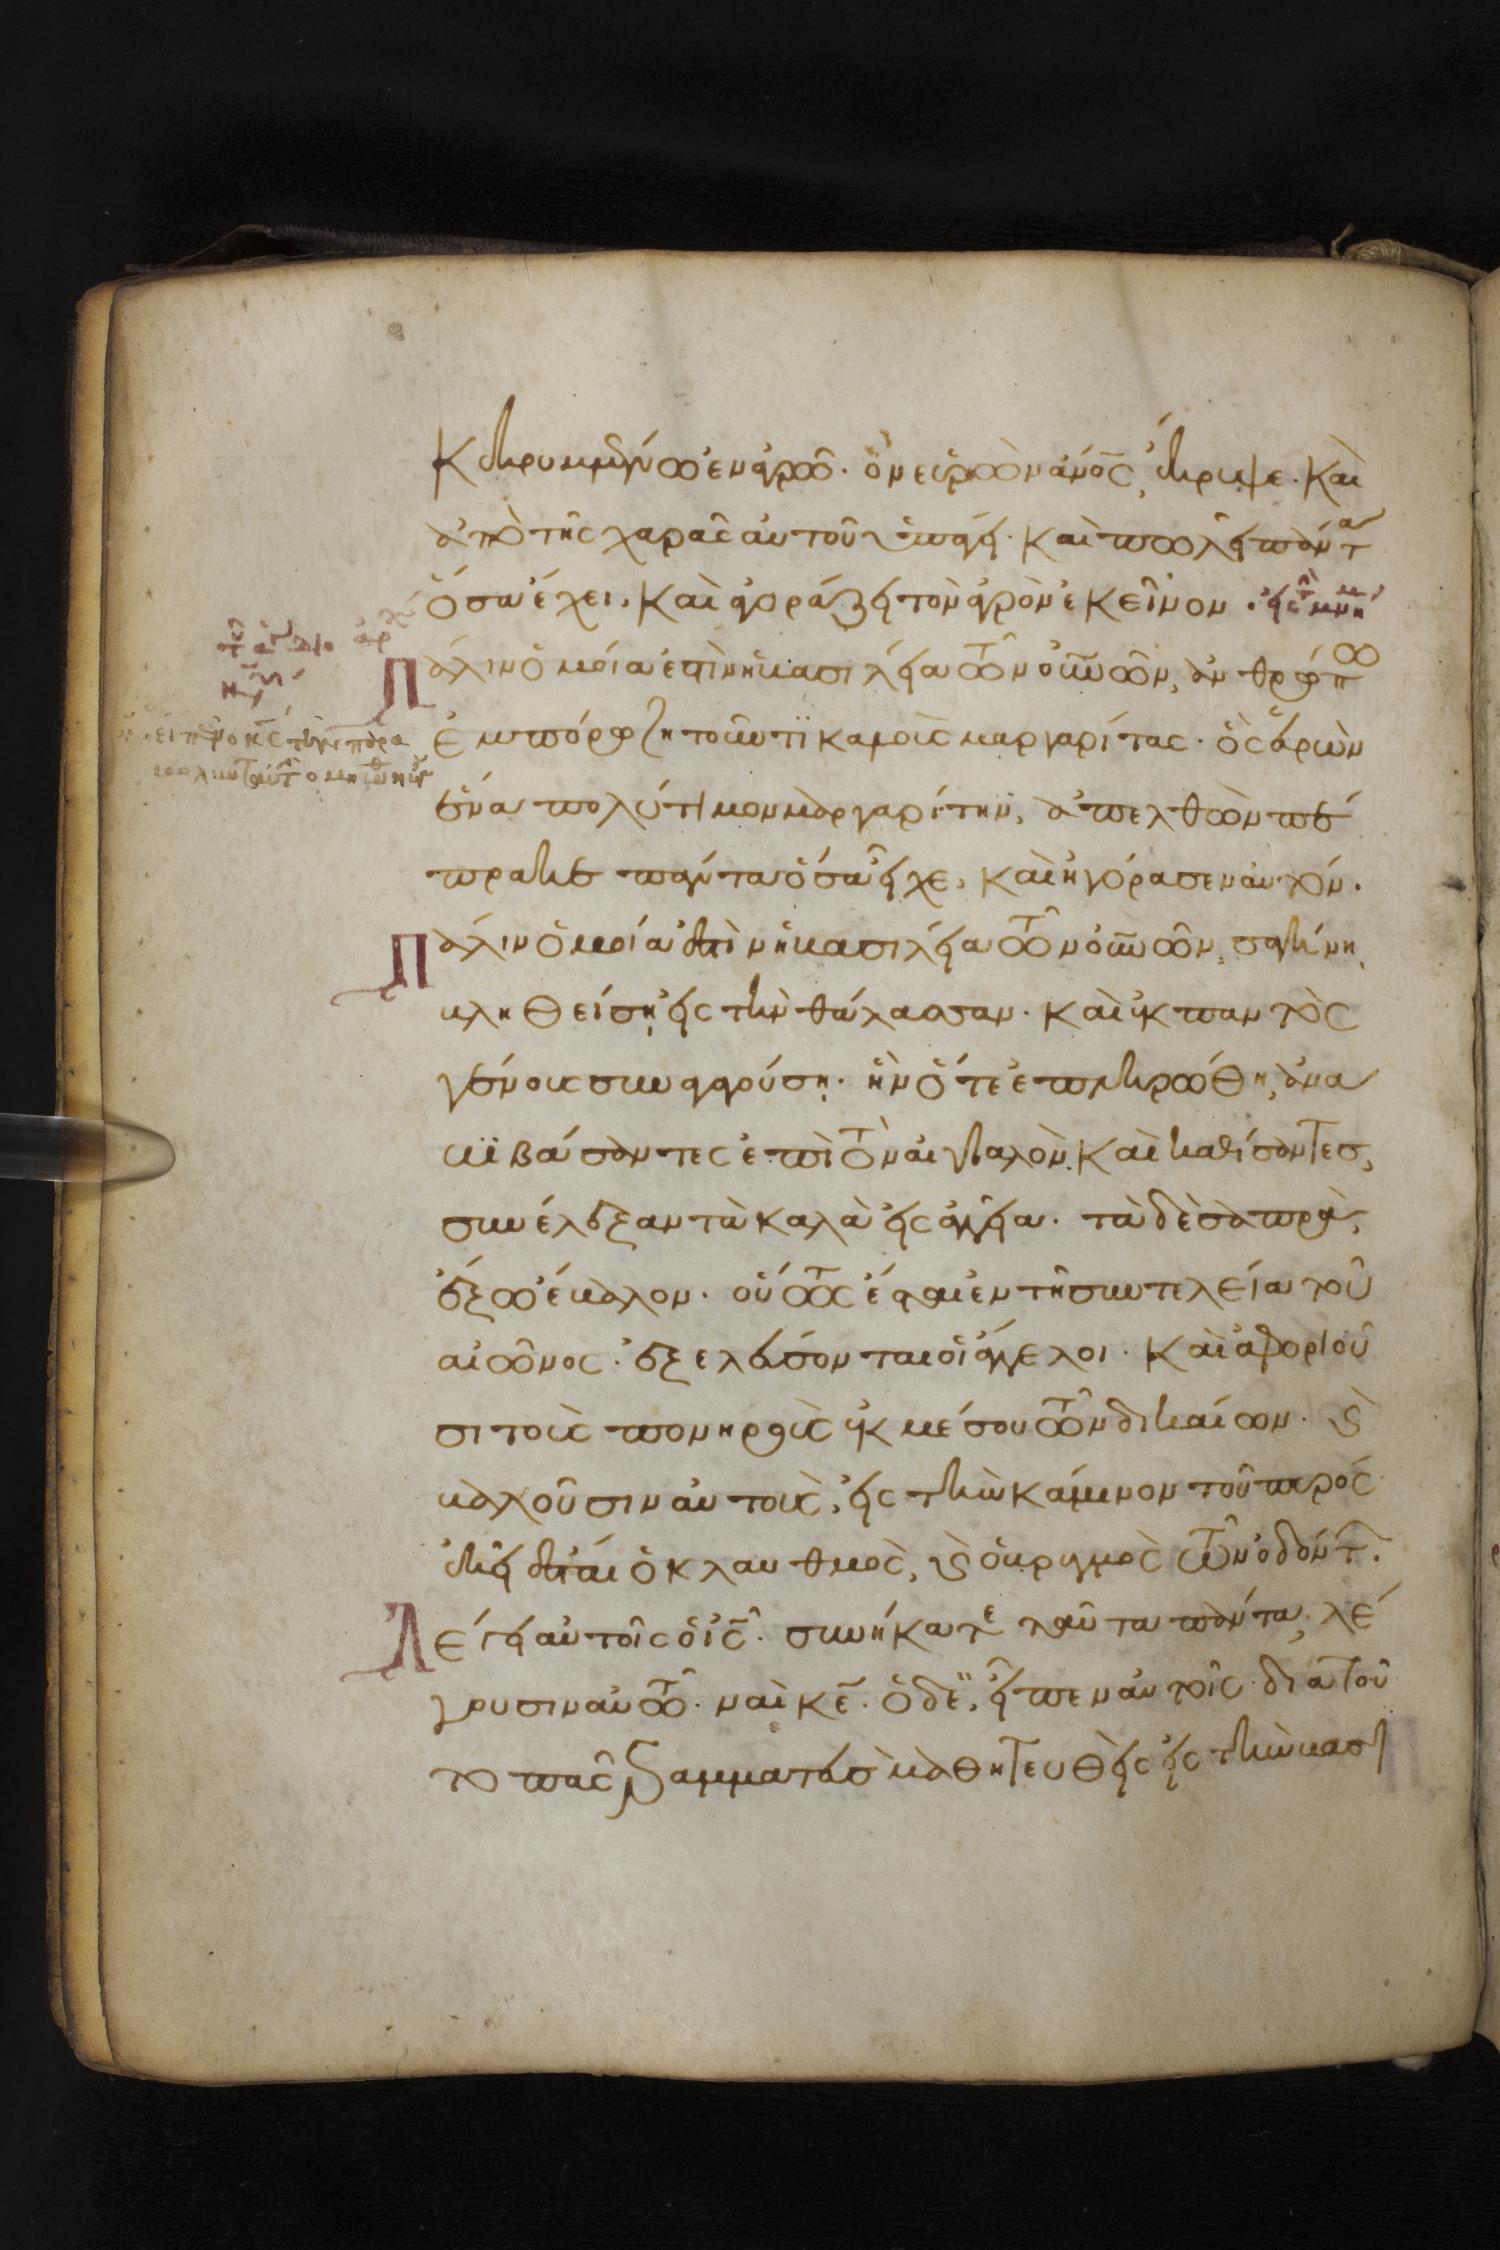 κεκρυμμένω ἐν ἀγρῶ· ὃν εὑρὼν ἄνος, ἔκρυψε· καὶ
ἀπὸ τῆς χαρᾶς αὐτοῦ ὑπάγει· καὶ πωλεῖ πάντα
ὅσα ἔχει, καὶ ἀγοράζει τὸν ἀγρὸν ἐκεῖνον·
Πάλιν ὁμοία ἐστὶν ἡ βασιλεία τῶν οὐνῶν, ἀνθρώπω
ἐμπόρω ζητοῦντι καλοὺς μαργαρίτας· ὃς εὑρὼν
ἕνα πολύτιμον μαργαρίτην, ἀπελθὼν πέ
πρακε πάντα ὅσα εἶχε, καὶ ἠγόρασεν αὐτόν·
Πάλιν ὁμοία ἐστὶν ἡ βασιλεία τῶν οὐνῶν, σαγήνη
βληθείση εἰς τὴν θάλασσαν· καὶ ἐκ παντὸς
γένους συναγαγούση· ἣν ὅτε ἐπληρώθη, ἀνα
βιβάσαντες ἐπὶ τὸν αἰγιαλὸν, καὶ καθίσαντες,
συνέλεξαν τὰ καλὰ εἰς ἀγγεῖα· τὰ δὲ σαπρὰ,
ἔξω ἔβαλον· οὕτως ἔσται ἐν τῆ συντελεία τοῦ
αἰῶνος· ἐξελεύσονται οἱ ἄγγελοι· καὶ ἀφοριοῦ
σι τοὺς πονηροὺς ἐκ μέσου τῶν δικαίων· ϗ
βαλοῦσιν αὐτοὺς, εἰς τὴν κάμινον τοῦ πυρός
ἐκεῖ ἔσται ὁ κλαυθμὸς, ϗ ὁ βρυγμὸς τῶν ὀδόντ·
Λέγει αὐτοῖς ὁ ἰς· συνήκατε ταῦτα πάντα, λέ
γουσιν αὐτῶ· ναὶ κε· ὁ δὲ, εἶπεν αὐτοῖς· διὰ τοῦ
το πᾶς γραμματεὺς μαθητευθεὶς εἰς τὴν βασι